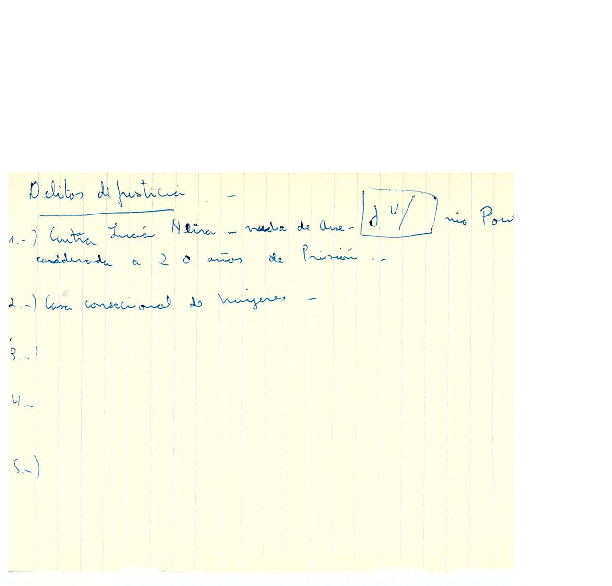 Delitos de justicia -
1.-) Contra Lucia Neira - viuda de Ave- nio Pow
condenada a 20 años de Prisión.-
2.-) Casa correccional de mujeres -
3.-)
4.-
5.-)